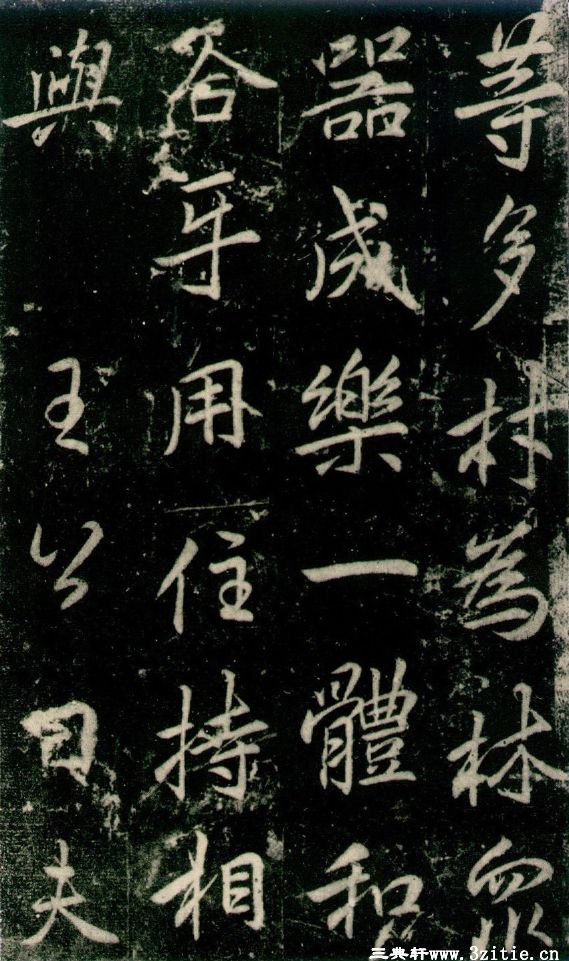 等多材為林眾
器成樂一體和
合牙用住持相
與王公曰夫
三典轩www.3zitie.cn